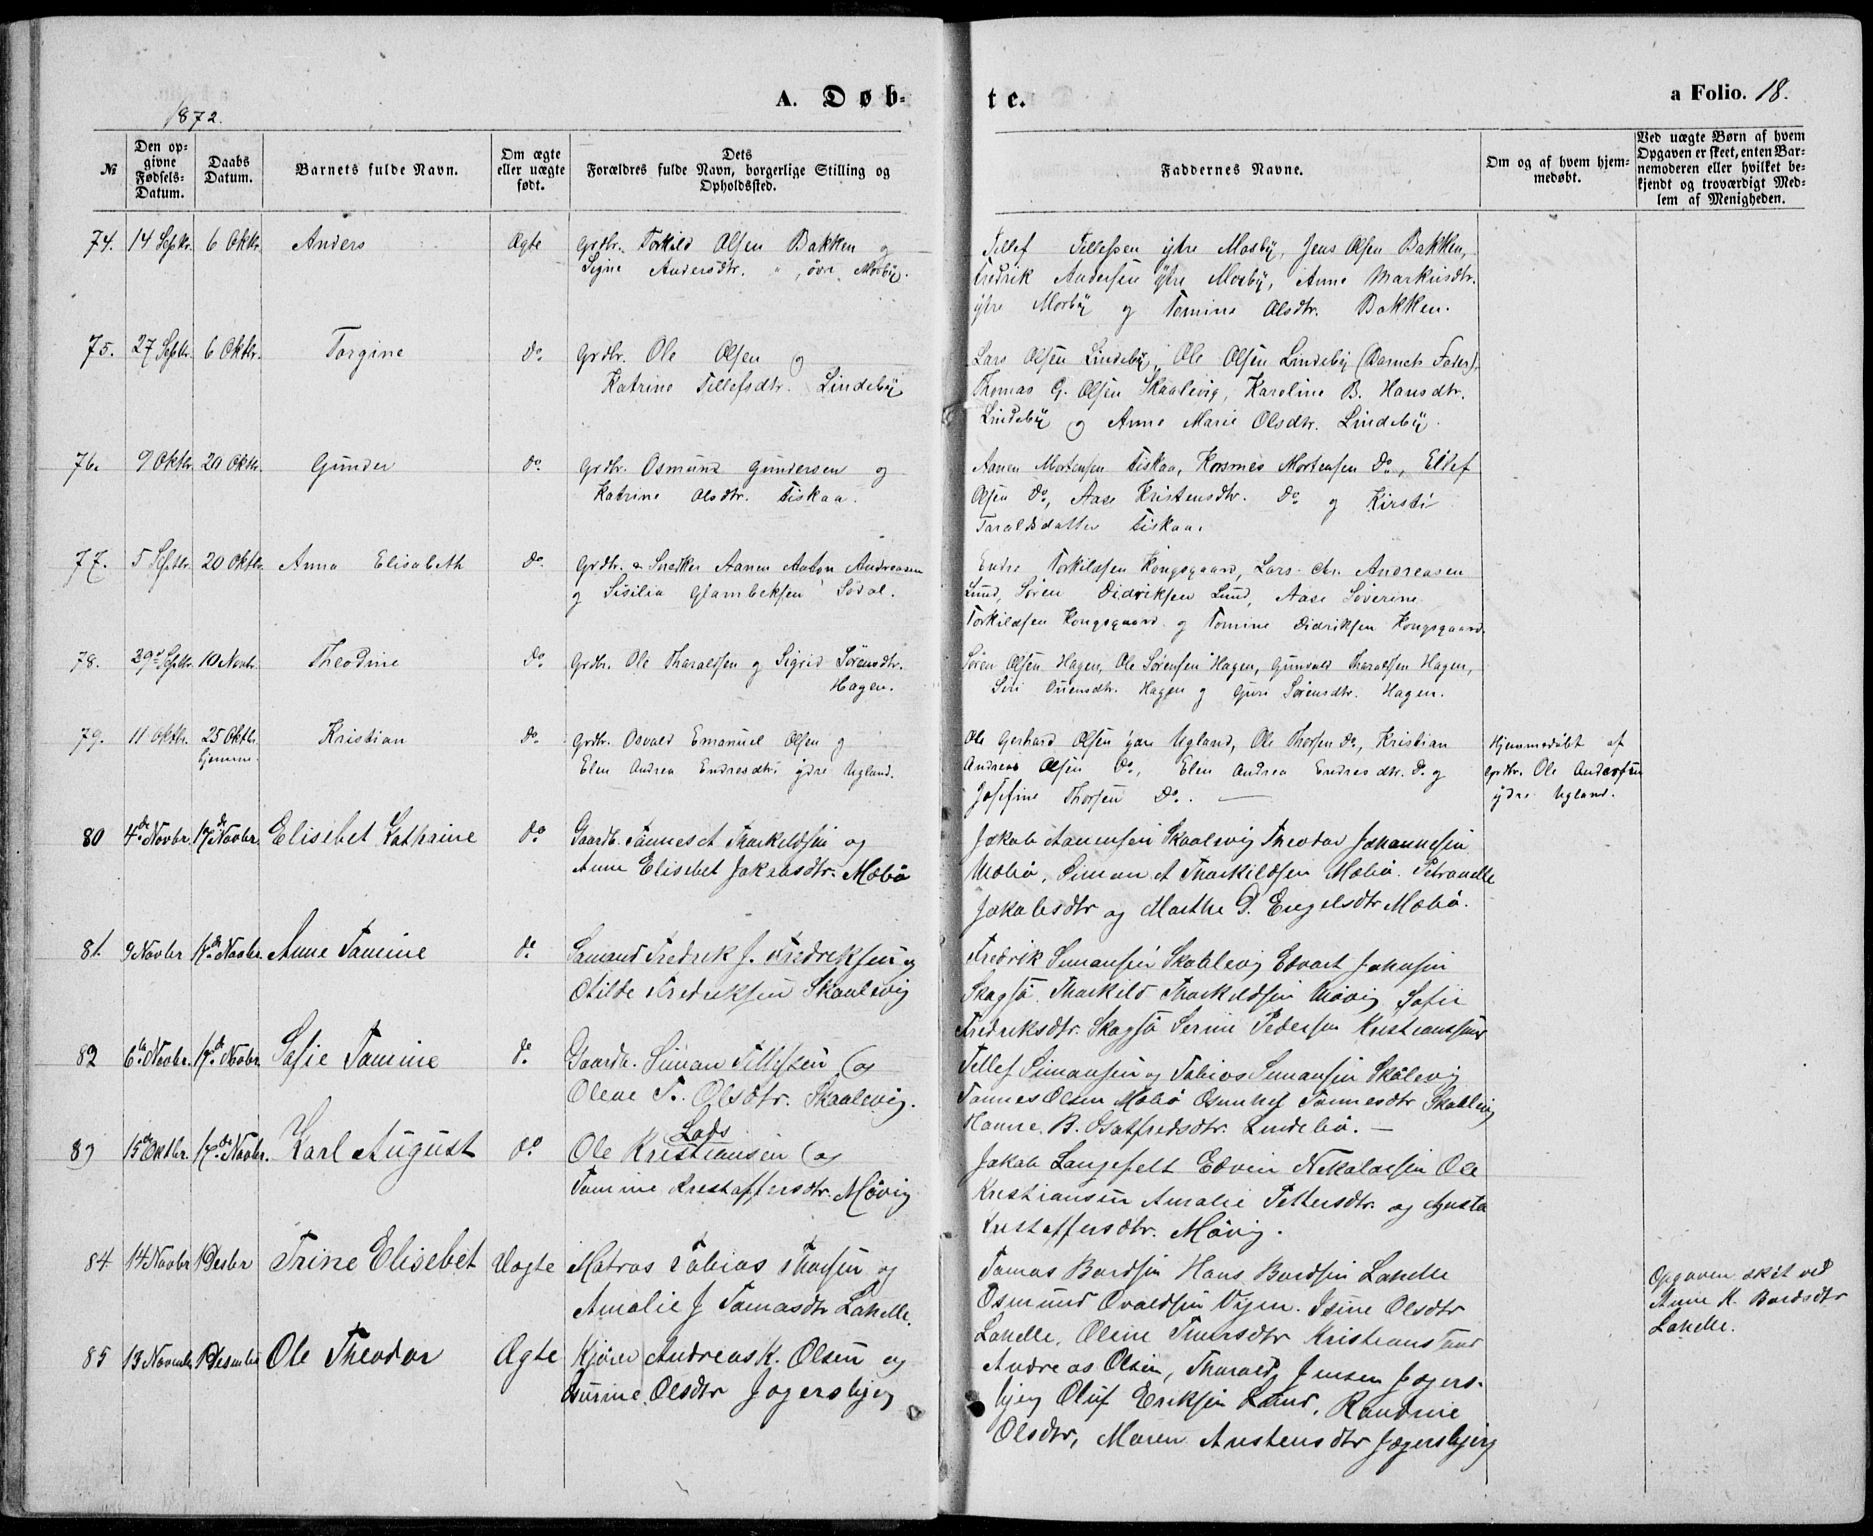 1872.
A. Døb-
te.
a Folio. 18.
№
Den op-
givne
Fødsels-
Datum.
Daabs
Datum.
Barnets fulde Navn.
Om ægte
eller uægte
født.
Dets
Forældres fulde Navn, borgerlige Stilling og
Opholdssted.
Faddernes Navne.
Om og af hvem hjem-
medøbt.
Ved uægte Børn af hvem
Opgaven er skeet, enten Bar-
nemoderen eller hvilket be-
kjendt og troværdigt Med-
lem af Menigheden.
74. 14 Septbr. 6 Oktbr. Anders Ægte Grdbr. Torkild Olsen Bakken og
Signe Andersdtr. " , øvre Mosby.
Tellef Tellefsen ytre Mosby, Jens Olsen Bakken,
Fredrik Andersen ytre Mosby, Anne Markusdtr.
ytre Mosby og Tomine Olsdtr. Bakken.
75. 27 Septbr. 6 Oktbr. Torgine do. Grdbr. Ole Olsen og
Katrine Tellefsdtr. Lindeby
Lars Olsen Lindeby, Ole Olsen Lindeby (Barnets Fader),
Thomas G. Olsen Skaalevig, Karoline B. Hansdtr.
Lindeby og Anne Marie Olsdtr. Lindeby.
76. 9 Oktbr. 20 Oktbr. Gunder do. Grdbr. Osmund Gundersen og
Katrine Olsdtr. Fiskaa.
Aanen Mortensen Fiskaa, Rosmes Mortensen Do., Ellef
Olsen Do., Aase Kristensdtr. Do. og Kirsti
Taraldsdatter Fiskaa.
77. 5 Septbr. 20 Oktbr. Anna Elisabeth do. Grdbr. & Snekker Aanen Anton Andreasen
og Sisilia Glambeksen Sødal.
Endre Torkildsen Kongsgaard, Lars Chr. Andreasen
Lund, Søren Didriksen Lund, Aase Soverine
Torkildsen Kongsgaard og Tomine Didriksen Kongsgaard.
78. 29 Septbr. 10 Novbr. Theodine Do. Grdbr. Ole Tharaldsen og Sigrid Sørensdtr.
Hagen.
Søren Olsen Hagen, Ole Sørensen Hagen, Gunvald Tharaldsen Hagen,
Siri Hagen og Guri Sørensdtr. Hagen.
79. 11 Oktbr. 25 Oktbr. Kristian Do. Grdbr. Osvald Emanuel Olsen og
hjemme. Elen Andrea Endresdtr. ydre Ugland.
Ole Gerhard Olsen ydre Ugland, Ole Thorsen Do., Kristian
Andreas Olsen Do., Elen Andrea Endresdtr. Do. og
Josefine Thorsen Do. —
Hjemmedøbt af
Grdbr. Ole Andersen
ydre Ugland.
80 4de Novbr. 17de Novbr. Elisebet Kathrine do Gaardb. Tannes A Thorkildsen og
Anne Elisebet Jakobsdtr. Møbø
Jakob Aanensen Skaalevig Theodor Johannesen
Møbø, Simon A Thorkildsen Møbø. Petronelle
Jakobsdtr og Marthe D. Engelsdtr Møbø.
81. 9 Novbr 17de Novbr. Anne Tomine do. Sømand Fredrek J. Fredreksen og
Otilde Fredreksen Skaalevig
Fredrik Simonsen Skaalevig Edvart Johnsen
Skagsø. Thorkild Thorkildsen Møvig Sofie
Fredriksdtr. Skagsø Serine Pedersen Kristianssand
82 6te Novbr. 17de Novbr. Sofie Tomine do. Gaardb. Simon Tellefsen og
Olene T. Olsdtr. Skaalevig.
Tellef Simonsen og Tobias Simonsen Skålevig
Tonnes Olsen Møbø Tonnesdtr Skaalevig
Hanne. B. Gotfredsdtr. Lindebø. —
83 15de Oktbr. 17de Novbr. Karl August do Lods
Ole Kristiansen og
Tomine Kristoffersdtr. Møvig
Jakob Langefelt Edvin Nekolaisen Ole
Kristiansen Amalie Pettersdtr. og Gusta
Kristoffersdtr. Møvig.
84 14 Novbr 1 Desbr Trine Elisebet Uægte Matros Tobias Thorsen og
Amalie J Tomasdtr Lahelle.
Tomas Bordsen Hans Bordsen Lahelle
Osmund Ovaldsen Vigen. Isine Olsdtr
Lahelle. Oline Kristianssand
Opgaven skét ved
Anne K. Bordsdtr
Lahelle.
85 13 Novembr 1 Desember Ole Theodor Ægte Kjører Andreas K. Olsen og
Gurine Olsdtr Jegersbjeg
Andreas Olsen, Tharald Jensen Jegers-
bjeg Oluf Eriksen Lund, Randine
Olsdtr, Maren Austensdtr Jegersbjerg